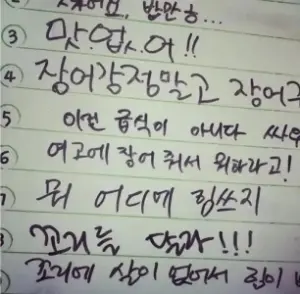 반만 하...
③ 맛.없.어!!
④ 장어강정말고 장어구
5 이건 급식이 아니다 싸우
6 여고에 장어 줘서 뭐하라고!
7 뭐 어디에 힘쓰지
꼬리를 달라!!!
꼬리에 살이 없어서 힘이